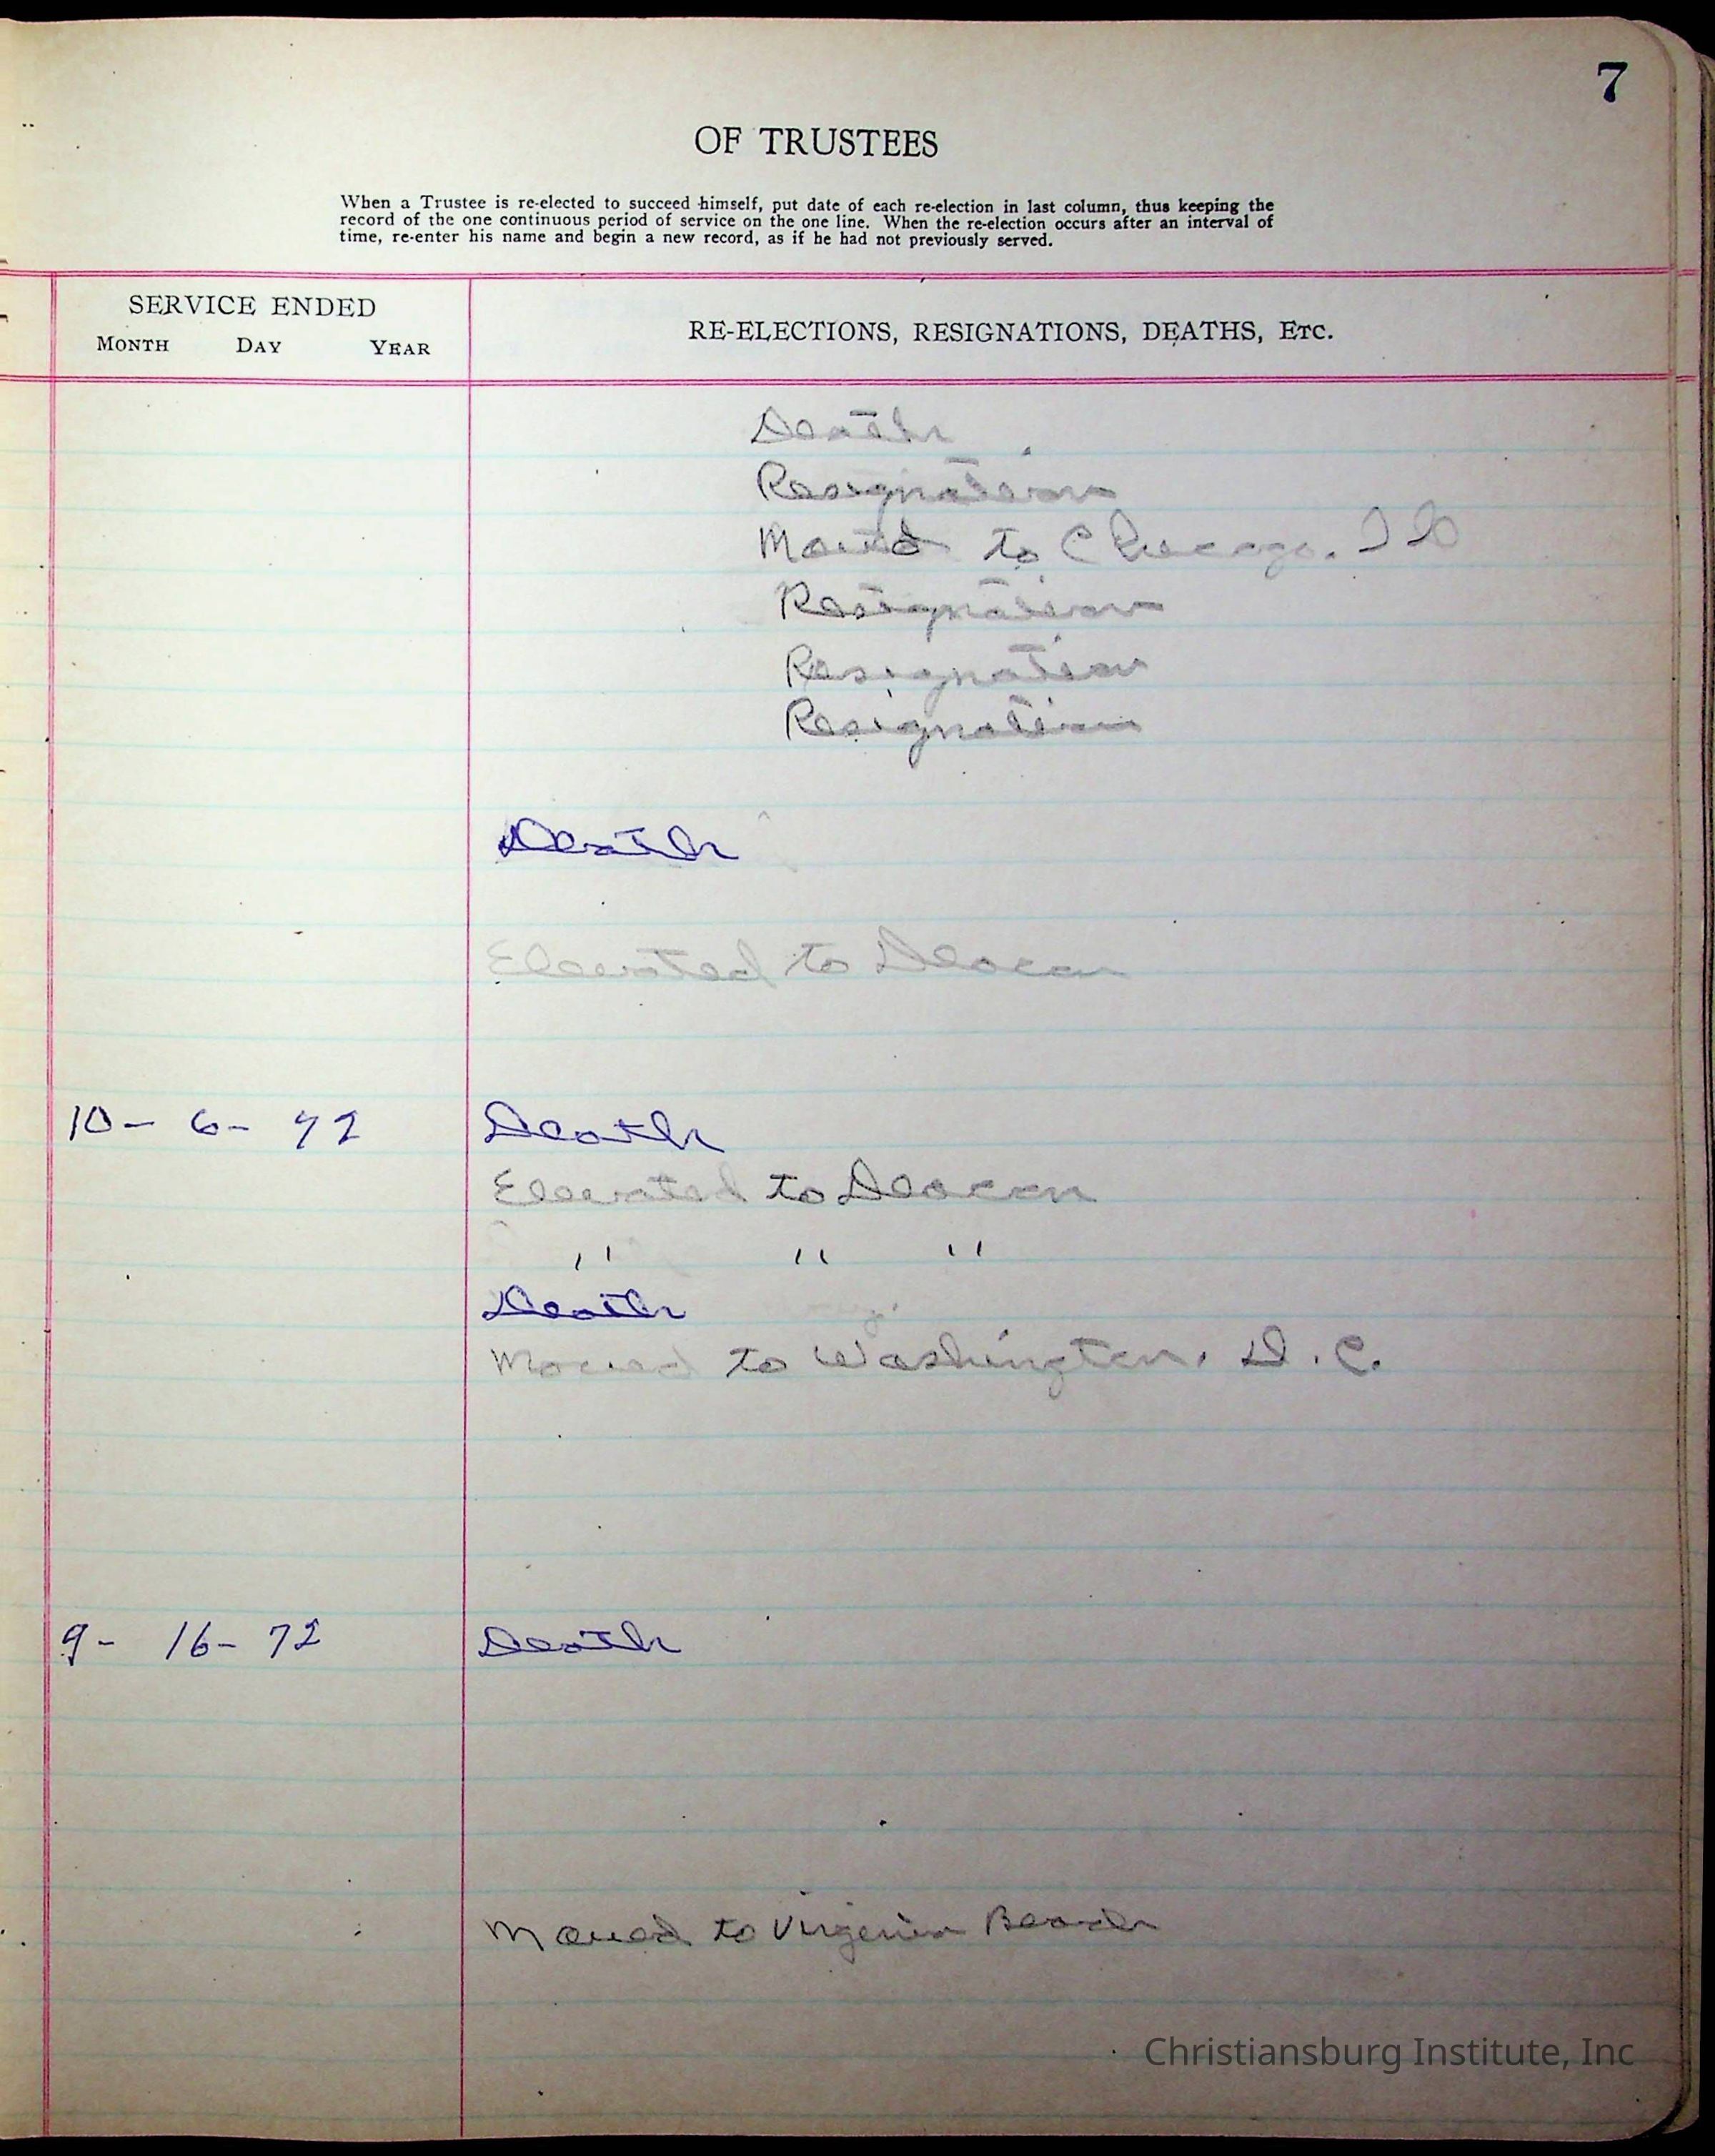 7
OF TRUSTEES
When a Trustee is re-elected to succeed himself, put date of each re-election in last column, thus keeping the
record of the one continuous period of service on the one line. When the re-election occurs after an interval of
time, re-enter his name and begin a new record, as if he had not previously served.
SERVICE ENDED
MONTH DAY YEAR
RE-ELECTIONS, RESIGNATIONS, DEATHS, ETC.
Death
Resignation
Moved to Chicago. Ill
Resignation
Resignation
Resignation
Death
Elevated to Deacon
10- 6- 72 Death
Elevated to Deacon
" " "
Death
Moved to Washington, D.C.
9- 16- 72 Death
Moved to Virginia Beach
Christiansburg Institute, Inc